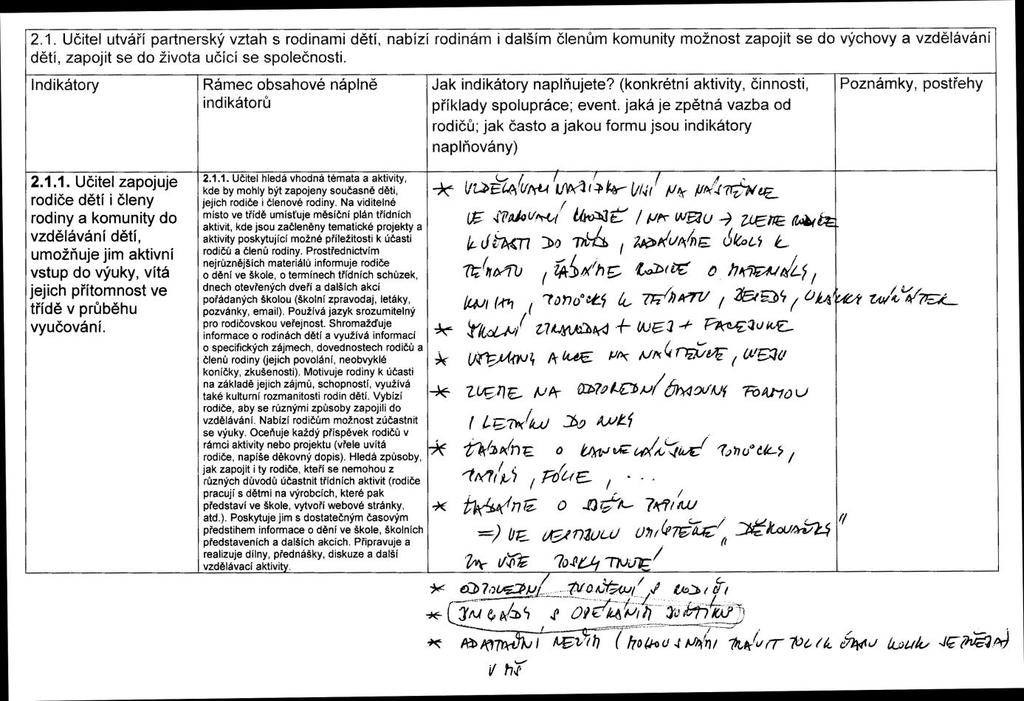 2.1. Učitel utváří partnerský vztah s rodinami dětí, nabízí rodinám i dalším členům komunity možnost zapojit se do výchovy a vzdělávání
dětí, zapojit se do života učící se společnosti.
Indikátory
Rámec obsahové náplně
indikátorů
Jak indikátory naplňujete? (konkrétní aktivity, činnosti,
příklady spolupráce; event. jaká je zpětná vazba od
rodičů; jak často a jakou formu jsou indikátory
naplňovány)
Poznámky, postřehy
2.1.1. Učitel zapojuje
rodiče dětí i členy
rodiny a komunity do
vzdělávání dětí,
umožňuje jim aktivní
vstup do výuky, vítá
jejich přítomnost ve
třídě v průběhu
vyučování.
2.1.1. Učitel hledá vhodná témata a aktivity,
kde by mohly být zapojeny současně děti,
jejich rodiče i členové rodiny. Na viditelné
místo ve třídě umísťuje měsíční plán třídních
aktivit, kde jsou začleněny tematické projekty a
aktivity poskytující možné příležitosti k účasti
rodičů a členů rodiny. Prostřednictvím
nejrůznějších materiálů informuje rodiče
o dění ve škole, o termínech třídních schůzek,
dnech otevřených dveří a dalších akcí
pořádaných školou (školní zpravodaj, letáky,
pozvánky, email). Používá jazyk srozumitelný
pro rodičovskou veřejnost. Shromažďuje
informace o rodinách dětí a využívá informací
o specifických zájmech, dovednostech rodičů a
členů rodiny (jejich povolání, neobvyklé
koníčky, zkušenosti). Motivuje rodiny k účasti
na základě jejich zájmů, schopností, využívá
také kulturní rozmanitosti rodin dětí. Vybízí
rodiče, aby se různými způsoby zapojili do
vzdělávání. Nabízí rodičům možnost zúčastnit
se výuky. Oceňuje každý příspěvek rodičů v
rámci aktivity nebo projektu (vřele uvítá
rodiče, napíše děkovný dopis). Hledá způsoby,
jak zapojit i ty rodiče, kteří se nemohou z
různých důvodů účastnit třídních aktivit (rodiče
pracují s dětmi na výrobcích, které pak
představí ve škole, vytvoří webové stránky,
atd.). Poskytuje jim s dostatečným časovým
předstihem informace o dění ve škole, školních
představeních a dalších akcích. Připravuje a
realizuje dílny, přednášky, diskuze a další
vzdělávací aktivity.
* VZDĚLÁVACÍ NABÍDKA VISÍ NA NÁSTĚNCE
VE SPOJOVACÍ CHODBĚ I NA WEBU → ZVEME RODIČE
K ÚČASTI DO TŘÍD, ZADÁVÁME ÚKOLY K
TÉMATU, ŽÁDÁME RODIČE O MATERIÁLY,
KNIHY, POMŮCKY K TÉMATU, BESEDY, UKÁZKY ZVÍŘÁTEK
* ŠKOLNÍ ZPRAVODAJ + WEB + FACEBOOK
* VŠECHNY AKCE NA NÁSTĚNCE, WEBU
* ZVEME NA ODPOLEDNÍ FORMOU
I LETÁKU DO RUKY
* ŽÁDÁME O KANCELÁŘSKÉ POMŮCKY,
PAPÍRY, FÓLIE, ...
* ŽÁDÁME O SBĚR PAPÍRU
=) VE VESTIBULU UMÍSTĚNÉ „DĚKOVAČKY“
ZA VŠE POSKYTNUTÉ
* ODPOLEDNÍ TVOŘENÍ S RODIČI
* (BRIGÁDY S OPÉKÁNÍM BUŘTÍKŮ)
* ADAPTAČNÍ REŽIM (MOHOU S NÁMI TRÁVIT TOLIK ČASU KOLIK JE TŘEBA)
V MŠ